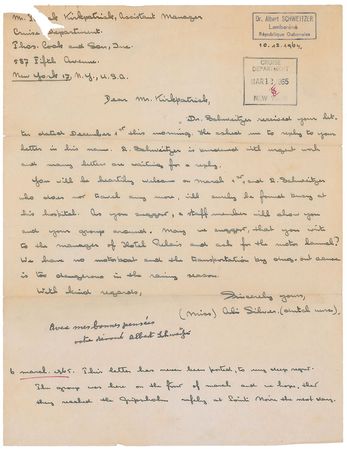 M. J. Kirkpatrick, Assistant Manager
Cruise Department.
Thos. Cook and Son, Inc.
587 Fifth Avenue.
New York 17, N.Y., U.S.A.
Dr. Albert SCHWEITZER
Lambaréné
République Gabonaise
10.12.1964.
CRUISE
DEPARTMENT
MAR 1 1965
NEW YORK
Dear Mr. Kirkpatrick,
Dr. Schweitzer received your let-
ter dated December 1st this morning. He asked me to reply to your
letter in his name. Dr. Schweitzer is with urgent work
and many letters are waiting for a reply.
You will be heartily welcome on March 1st, and Dr. Schweitzer
who does not travel any more, will surely be found busy at
his hospital. As you suggest, a staff member will show you
and your group around. May we suggest, that you write
to the manager of Hotel Relais and ask for the motor launch?
We have no motorboat and the transportation by our canoe
is too dangerous in the rainy season.
With kind regards,
Sincerely yours,
(Miss) Adi Silver. (dutch nurse).
Avec mes bonnes pensées
votre dévoué Albert Schweitzer
6 march. 1965. This letter has never been posted, to my deep regret.
The group was here on the four of march and we hope, that
they reached the Gripsholm safely at Point Noire the next day.